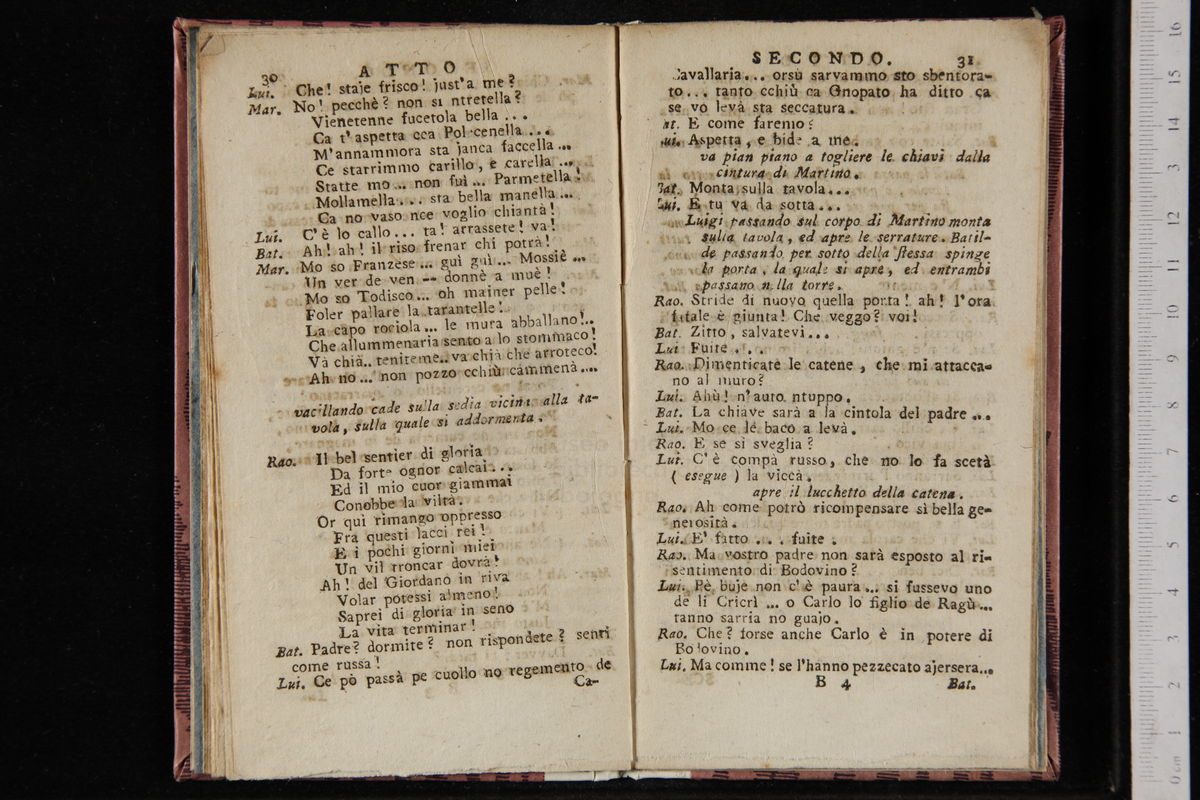 30
A T T O
Lui. Che! staje frisco! just'a me?
Mar. No! pecchè? non si ntretella?
Vienetenne fucetola bella ...
Ca t' aspetta cca Pol cenella ...
M'annammora sta janca faccella ...
Ce starrimmo carillo, e carella ...
Statte mo ... non fui ... Parmetella!
Mollamella ... sta bella manella ...
Ca no vaso nce voglio chiantà!
Lui. C' è lo callo ... ta! arrassete! va!
Bat. Ah! ah! il riso frenar chi potrà!
Mar. Mo so Franzese ... gui gui ... Mossiè ...
Un ver de ven -- donnè a muè!
Mo so Todisco ... oh mainer pelle!
Foler pallare la tarantelle!
La capo rociola ... le mura abballano!..
Che allummenaria sento a lo stommaco!
Và chià.. teniteme.. va chià che arroteco!
Ah no ... non pozzo cchiù cammenà ....
vacillando cade sulla sedia vicina alla ta-
vola, sulla quale si addormenta.
Rao. Il bel sentier di gloria
Da forte ognor calcai ...
Ed il mio cuor giammai
Conobbe la viltà.
Or qui rimango oppresso
Fra questi lacci rei!
E i pochi giorni miei
Un vil troncar dovrà!
Ah! del Giordano in riva
Volar potessi almeno!
Saprei di gloria in seno
La vita terminar!
Bat. Padre? dormite? non rispondete? senti
come russa!
Lui. Ce pò passà pe cuollo no regemento de
Ca-
SECONDO. 31
Cavallaria... orsù sarvammo sto sbentora-
to... tanto cchiù ca Gnopato ha ditto ca
se vo levà sta seccatura.
Bat. E come faremo?
Lui. Aspetta, e bide a me.
va pian piano a togliere le chiavi dalla
cintura di Martino.
Bat. Monta sulla tavola...
Lui. E tu va da sotta...
Luigi passando sul corpo di Martino monta
sulla tavola, ed apre le serrature. Batil-
de passando per sotto della stessa spinge
la porta, la quale si apre, ed entrambi
passano nella torre.
Rao. Stride di nuovo quella porta! ah! l'ora
fatale è giunta! Che veggo? voi!
Bat. Zitto, salvatevi...
Lui Fuite ...
Rao. Dimenticate le catene, che mi attacca-
no al muro?
Lui. Ahù! n'auto ntuppo.
Bat. La chiave sarà a la cintola del padre ...
Lui. Mo ce lè baco a levà.
Rao. E se si sveglia?
Lui. C' è compà russo, che no lo fa scetà
( esegue ) la viccà.
apre il lucchetto della catena.
Rao. Ah come potrò ricompensare sì bella ge-
nerosità.
Lui. E' fatto ... fuite.
Rao. Ma vostro padre non sarà esposto al ri-
sentimento di Bodovino?
Lui. Pè buje non c' è paura ... si fussevo uno
de li Cricrì ... o Carlo lo figlio de Ragù ...
tanno sarria no guajo.
Rao. Che? forse anche Carlo è in potere di
Bodovino.
Lui. Ma comme! se l'hanno pezzecato ajersera...
B 4 Bat.
16 15 14 13 12 11 10 9 8 7 6 5 4 3 2 1 0 cm